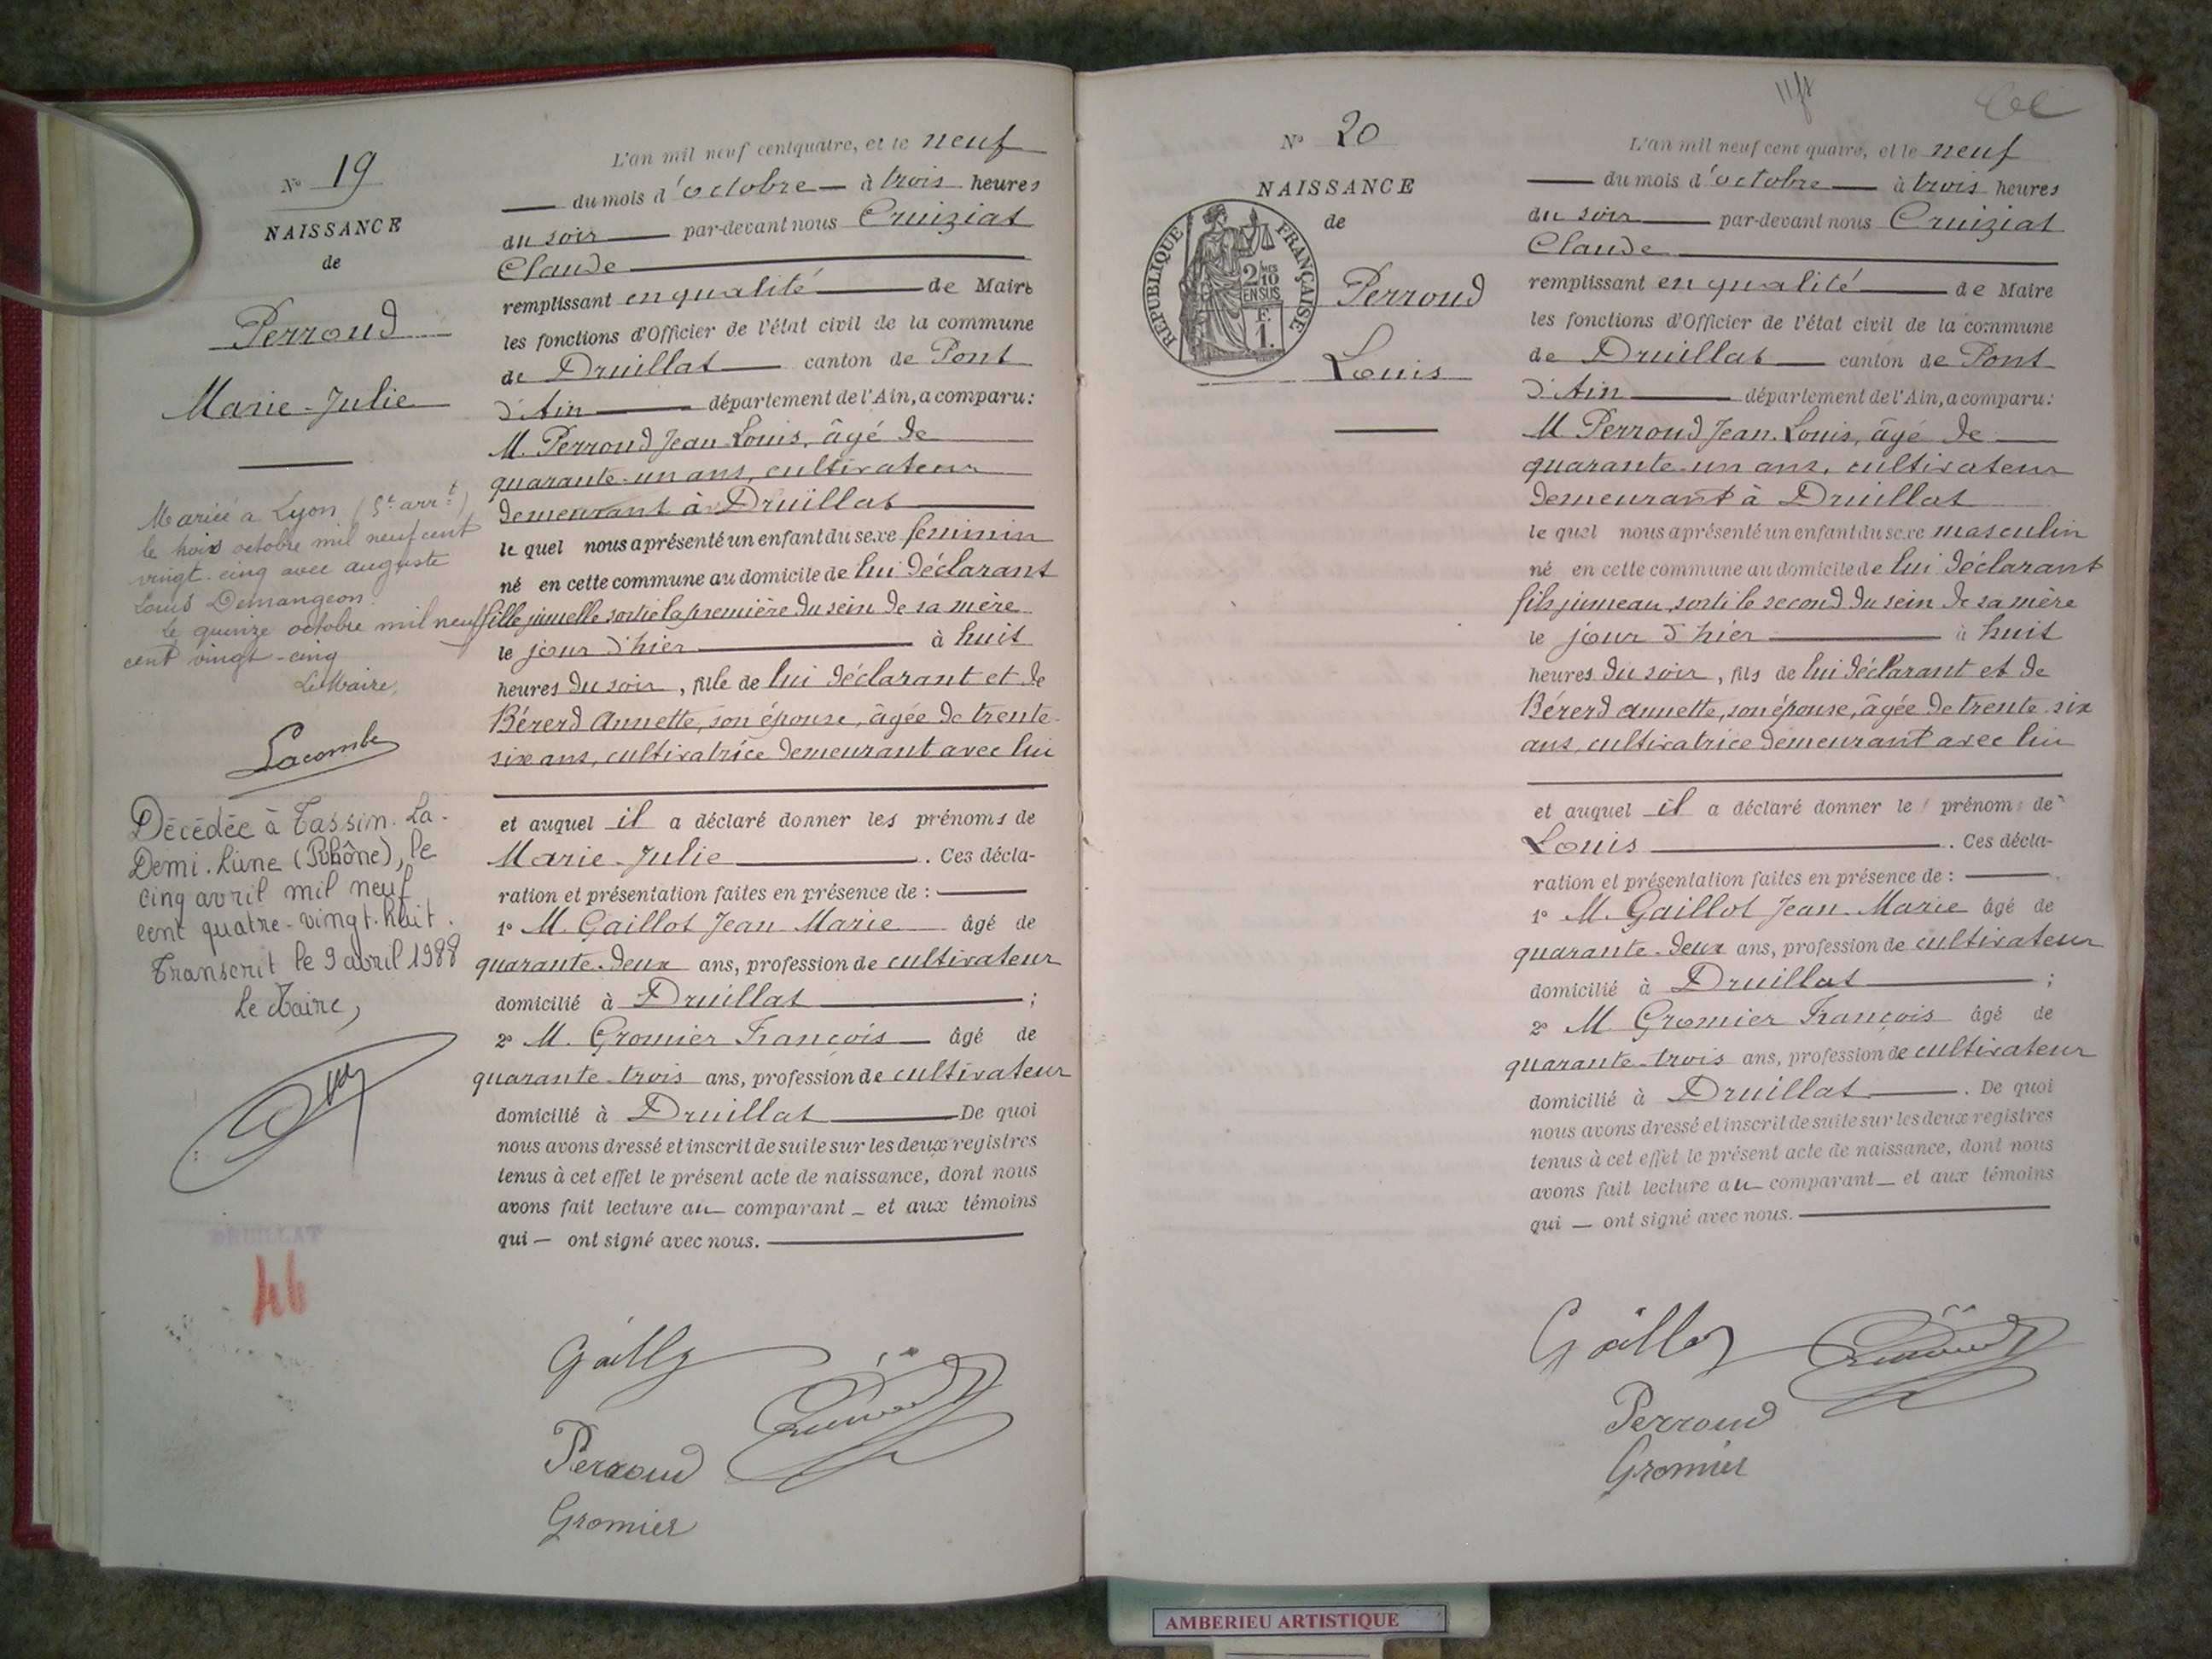 N° 19
NAISSANCE
de
Perroud
Marie-Julie
Mariée à Lyon (5e arrt)
le trois octobre mil neuf cent
vingt-cinq avec auguste
Louis Demangeon.
le quinze octobre mil neuf
cent vingt-cinq
Le Maire,
Lacombe
Décédée à Tassin-La-
Demi-Lune (Rhône), le
cinq avril mil neuf
cent quatre-vingt-huit.
Transcrit le 9 avril 1988
Le Maire,
DRUILLAT
46
L'an mil neuf cent quatre, et le neuf
du mois d'octobre à trois heures
du soir par-devant nous Cruiziat
Claude
remplissant en qualité de Maire
les fonctions d'Officier de l'état civil de la commune
de Druillat canton de Pont
d'Ain département de l'Ain, a comparu:
M. Perroud Jean Louis, âgé de
quarante-un ans, cultivateur
demeurant à Druillat
le quel nous a présenté un enfant du sexe feminin
né en cette commune au domicile de lui déclarant
fille jumelle sortie la première du sein de sa mère
le jour d'hier à huit
heures du soir, fille de lui déclarant et de
Bérerd Annette, son épouse, âgée de trente-
six ans, cultivatrice demeurant avec lui
et auquel il a déclaré donner les prénoms de
Marie-Julie. Ces décla-
ration et présentation faites en présence de :
1° M. Gaillot Jean Marie âgé de
quarante-deux ans, profession de cultivateur
domicilié à Druillat ;
2° M. Gromier François âgé de
quarante-trois ans, profession de cultivateur
domicilié à Druillat De quoi
nous avons dressé et inscrit de suite sur les deux registres
tenus à cet effet le présent acte de naissance, dont nous
avons fait lecture au comparant et aux témoins
qui ont signé avec nous.
Perroud
Gromier
N° 20
NAISSANCE
de
RÉPUBLIQUE FRANÇAISE
2/10MES
EN SUS
F.
1.
Perroud
Louis
L'an mil neuf cent quatre, et le neuf
du mois d'octobre à trois heures
du soir par-devant nous Cruiziat
Claude
remplissant en qualité de Maire
les fonctions d'Officier de l'état civil de la commune
de Druillat canton de Pont
d'Ain département de l'Ain, a comparu:
M Perroud Jean Louis, âgé de
quarante-un ans, cultivateur
demeurant à Druillat
le quel nous a présenté un enfant du sexe masculin
né en cette commune au domicile de lui déclarant
fils jumeau, sorti le second du sein de sa mère
le jour d'hier à huit
heures du soir, fils de lui déclarant et de
Bérerd annette, son épouse, âgée de trente-six
ans, cultivatrice demeurant avec lui
et auquel il a déclaré donner le prénom de
Louis. Ces décla-
ration et présentation faites en présence de :
1° M. Gaillot Jean-Marie âgé de
quarante-deux ans, profession de cultivateur
domicilié à Druillat ;
2° M Gromier François âgé de
quarante-trois ans, profession de cultivateur
domicilié à Druillat. De quoi
nous avons dressé et inscrit de suite sur les deux registres
tenus à cet effet le présent acte de naissance, dont nous
avons fait lecture au comparant et aux témoins
qui ont signé avec nous.
Gaillot
Perroud
Gromier
AMBERIEU ARTISTIQUE